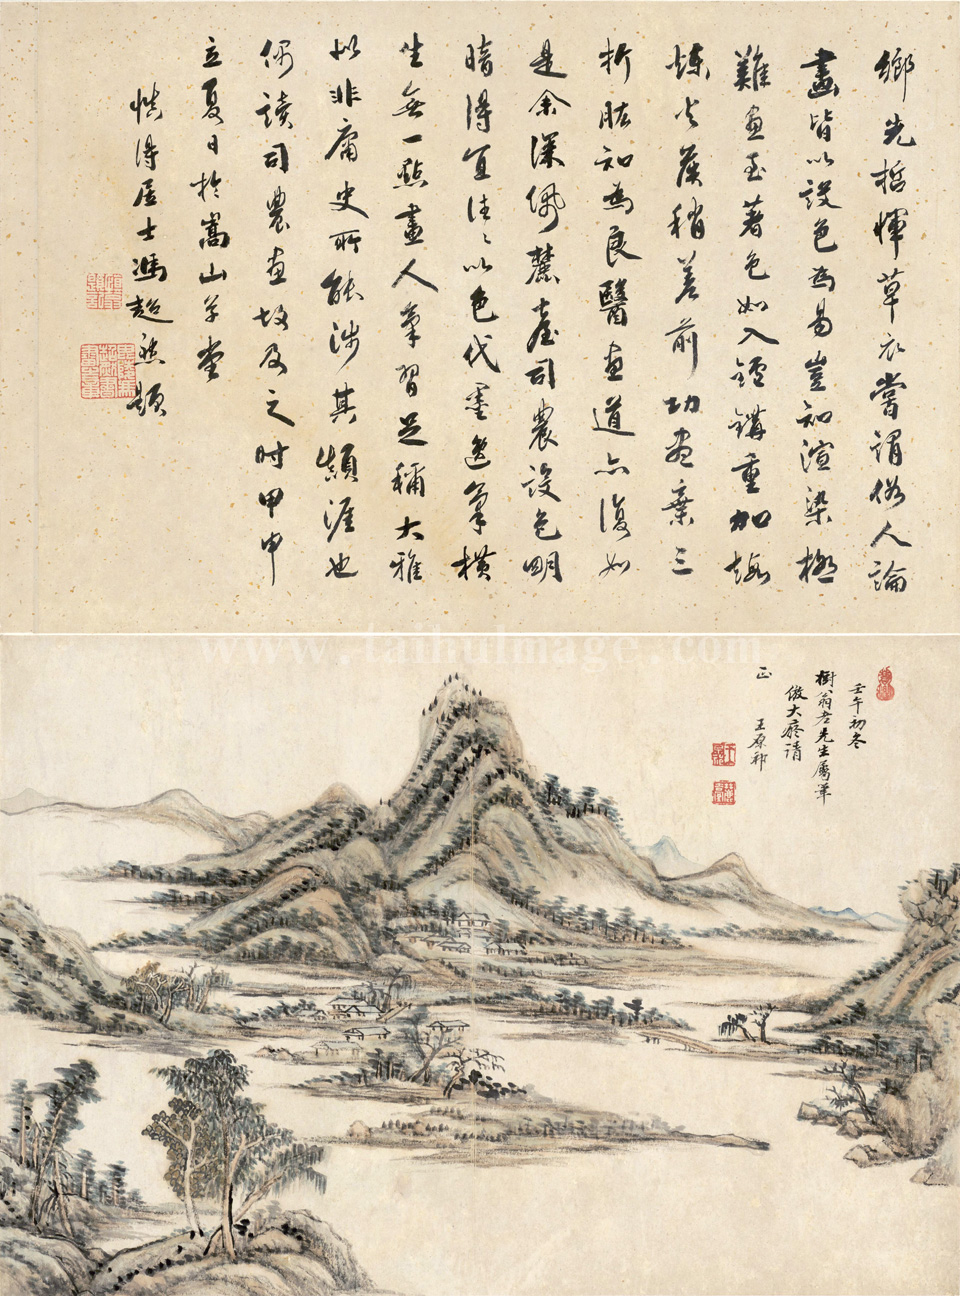 鄉先哲惲草衣嘗謂俗人論
畫皆以設色為易豈知渲染極
難畫至著色如入鑪鞲重加煅
煉火候稍差前功盡棄三
折肱知為良醫畫道亦復如
是余深佩麓臺司農設色明
暗得宜往〻以色代墨逸筆橫
生無一點畫人氣習足稱大雅
似非庸史所能涉其顛涯也
偶讀司農畫故及之時甲申
立夏日於嵩山草堂
慎得居士馮超然題
www.taihuimage.com
壬午初冬
樹翁老先生屬筆
倣大癡請
正
王原祁